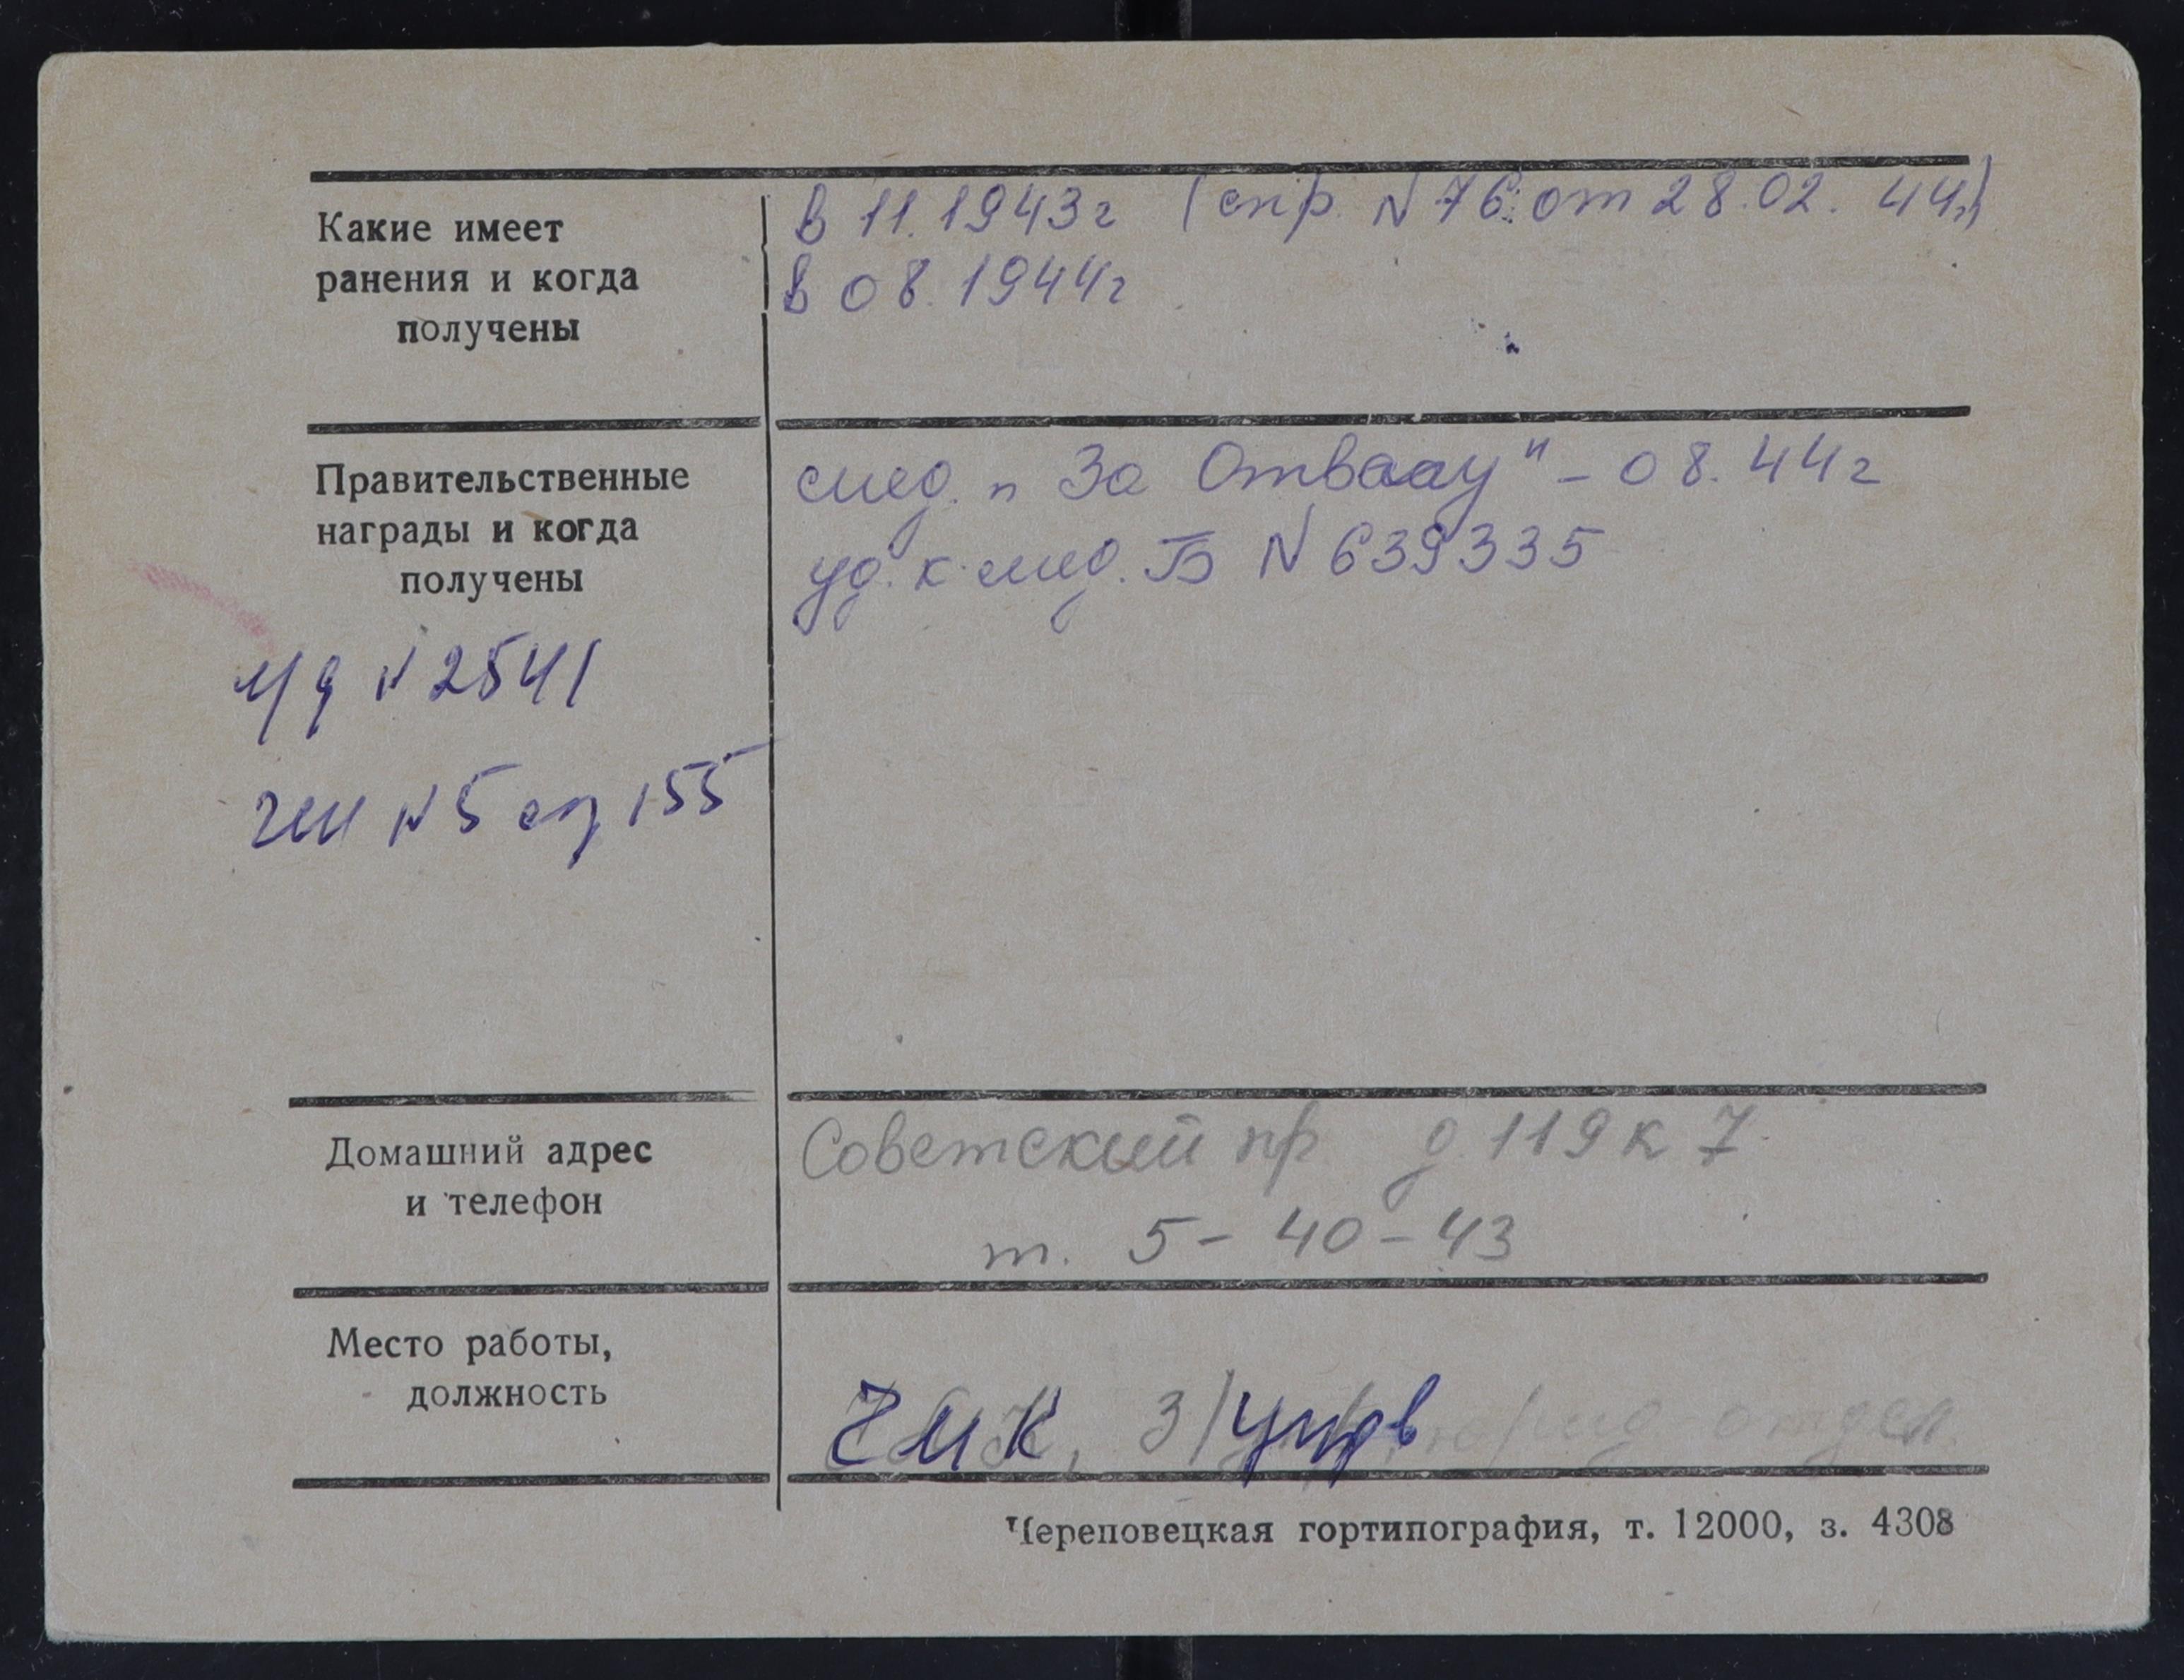 Какие имеет
ранения и когда
получены
в 11.1943г (спр. N 76 от 28.02. 44г)
в 08.1944г
Правительственные
награды и когда
получены
мед. „За Отвагу" - 08.44г
уд. к мед. Б N 639335
У/д N 2541
N 5 155
Домашний адрес
и телефон
Советский пр д. 119 к 7
т. 5-40-43
Место работы,
должность
ЧМК, З/ отдел
Череповецкая гортипография, т. 12000, з. 4308